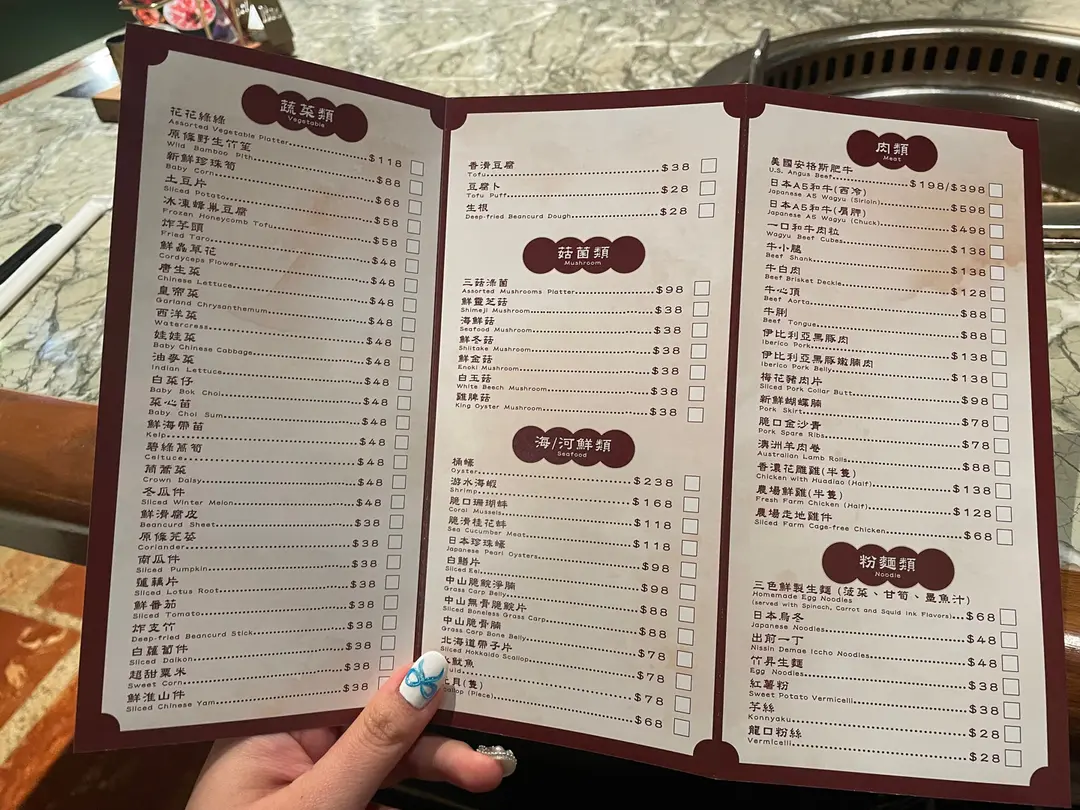 蔬菜類
Vegetable
花花綠綠
Assorted Vegetable Platter $118
原條野生竹笙
Wild Bamboo Pith $88
新鮮珍珠筍
Baby Corn $68
土豆片
Sliced Potato $58
冰凍蜂巢豆腐
Frozen Honeycomb Tofu $58
炸芋頭
Fried Taro $48
鮮蟲草花
Cordyceps Flower $48
唐生菜
Chinese Lettuce $48
皇帝菜
Garland Chrysanthemum $48
西洋菜
Watercress $48
娃娃菜
Baby Chinese Cabbage $48
油麥菜
Indian Lettuce $48
白菜仔
Baby Bok Choi $48
菜心苗
Baby Choi Sum $48
鮮海帶苗
Kelp $48
碧綠萵筍
Celtuce $48
茼蒿菜
Crown Daisy $48
冬瓜件
Sliced Winter Melon $48
鮮滑腐皮
Beancurd Sheet $38
原條芫荽
Coriander $38
南瓜件
Sliced Pumpkin $38
蓮藕片
Sliced Lotus Root $38
鮮番茄
Sliced Tomato $38
炸支竹
Deep-fried Beancurd Stick $38
白蘿蔔件
Sliced Daikon $38
超甜粟米
Sweet Corn $38
鮮淮山件
Sliced Chinese Yam $38
香滑豆腐
Tofu $38
豆腐卜
Tofu Puff $28
生根
Deep-fried Beancurd Dough $28
菇菌類
Mushroom
三菇添菌
Assorted Mushrooms Platter $98
鮮靈芝菇
Shimeji Mushroom $38
海鮮菇
Seafood Mushroom $38
鮮冬菇
Shiitake Mushroom $38
鮮金菇
Enoki Mushroom $38
白玉菇
White Beech Mushroom $38
雞髀菇
King Oyster Mushroom $38
海/河鮮類
Seafood
桶蠔
Oyster $238
游水海蝦
Shrimp $168
脆口珊瑚蚌
Coral Mussels $118
脆滑桂花蚌
Sea Cucumber Meat $118
日本珍珠蠔
Japanese Pearl Oysters $98
白鱔片
Sliced Eel $98
中山脆鯇淨腩
Grass Carp Belly $88
中山無骨脆鯇片
Sliced Boneless Grass Carp $88
中山脆骨腩
Grass Carp Bone Belly $78
北海道帶子片
Sliced Hokkaido Scallop $78
魷魚
uid $78
貝(隻)
allop (Piece) $68
肉類
Meat
美國安格斯肥牛
U.S. Angus Beef $198/$398
日本A5和牛(西冷)
Japanese A5 Wagyu (Sirloin) $598
日本A5和牛(肩胛)
Japanese A5 Wagyu (Chuck) $498
一口和牛肉粒
Wagyu Beef Cubes $138
牛小腿
Beef Shank $138
牛白肉
Beef Brisket Deckle $128
牛心頂
Beef Aorta $88
牛脷
Beef Tongue $88
伊比利亞黑豚肉
Iberico Pork $138
伊比利亞黑豚嫩腩肉
Iberico Pork Belly $138
梅花豬肉片
Sliced Pork Collar Butt $98
新鮮蝴蝶腩
Pork Skirt $78
脆口金沙骨
Pork Spare Ribs $78
澳洲羊肉卷
Australian Lamb Rolls $88
香濃花雕雞(半隻)
Chicken with Huadiao (Half) $138
農場鮮雞(半隻)
Fresh Farm Chicken (Half) $128
農場走地雞件
Sliced Farm Cage-free Chicken $68
粉麵類
Noodle
三色鮮製生麵 (菠菜、甘筍、墨魚汁)
Homemade Egg Noodles
(served with Spinach, Carrot and Squid Ink Flavors) $68
日本烏冬
Japanese Noodles $48
出前一丁
Nissin Demae Iccho Noodles $48
竹昇生麵
Egg Noodles $38
紅薯粉
Sweet Potato Vermicelli $38
芋絲
Konnyaku $28
龍口粉絲
Vermicelli $28